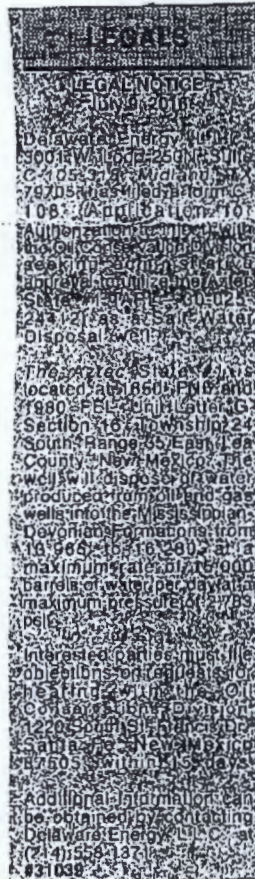 LEGALS
LEGAL NOTICE
July 9, 2018
Delaware Energy, LLC
3001 W. Loop 250 N. Suite
C-105-318, Midland, TX
79705 has filed Form C-
108 (Application for
Authorization to Inject) with
the Oil Conservation Division
seeking
approval to utilize the Aztec
State
as a Salt Water
Disposal well.
The Aztec State is
located at 1650' FNL and
1980' FEL, Unit Letter G,
Section 16, Township 24
South, Range 35 East, Lea
County, New Mexico. The
well will dispose of water
produced from oil and gas
wells into the Mississippian-
Devonian Formations from
to at a
maximum rate of
barrels of water per day at a
maximum pressure of
psi.
Interested parties must file
objections or requests for
hearing with the Oil
Conservation Division,
1220 South St. Francis Dr.,
Santa Fe, New Mexico
87505 within 15 days.
Additional information can
be obtained by contacting
Delaware Energy, LLC at
#31039